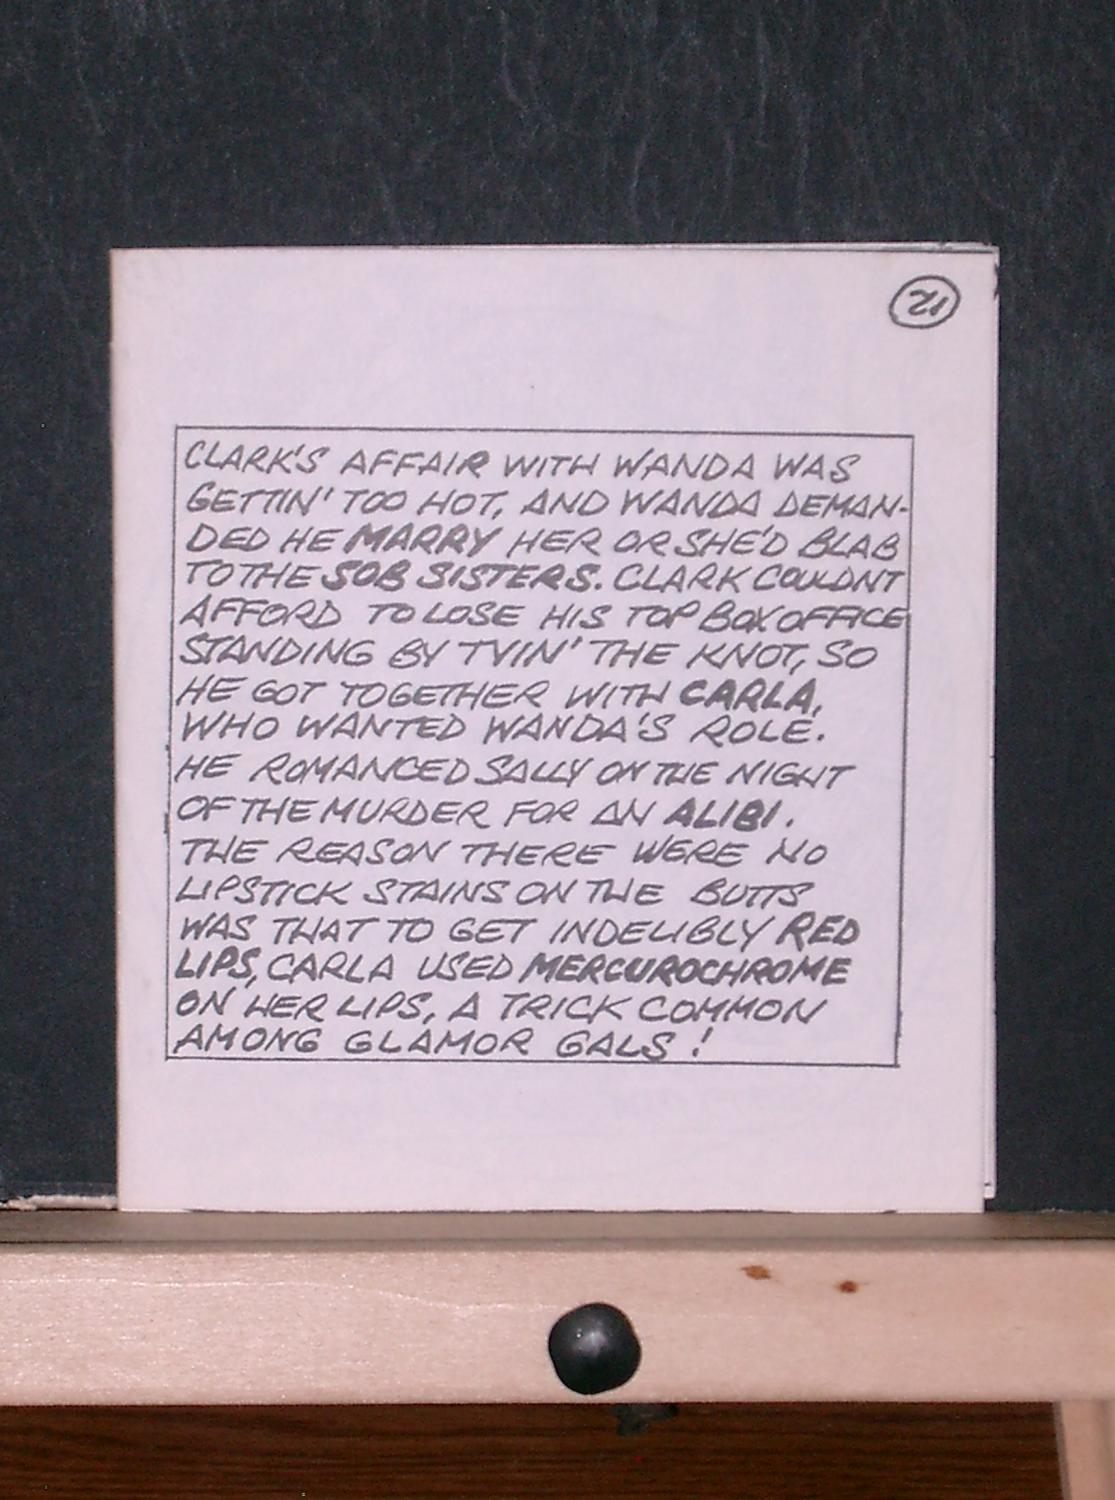 21
CLARK'S AFFAIR WITH WANDA WAS
GETTIN' TOO HOT, AND WANDA DEMAN-
DED HE MARRY HER OR SHE'D BLAB
TO THE SOB SISTERS. CLARK COULDNT
AFFORD TO LOSE HIS TOP BOX OFFICE
STANDING BY TYIN' THE KNOT, SO
HE GOT TOGETHER WITH CARLA,
WHO WANTED WANDA'S ROLE.
HE ROMANCED SALLY ON THE NIGHT
OF THE MURDER FOR AN ALIBI.
THE REASON THERE WERE NO
LIPSTICK STAINS ON THE BUTTS
WAS THAT TO GET INDELIBLY RED
LIPS, CARLA USED MERCUROCHROME
ON HER LIPS, A TRICK COMMON
AMONG GLAMOR GALS!